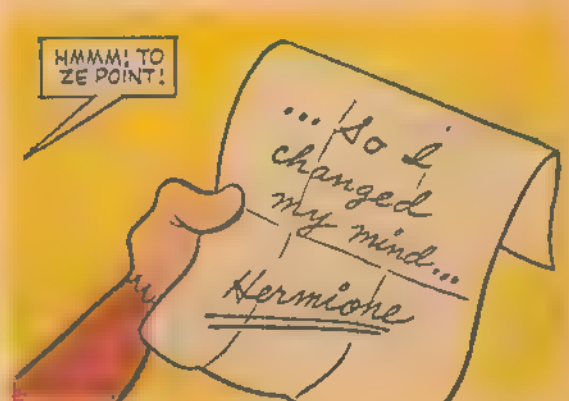 HMMM! TO
ZE POINT!
... So I
changed
my mind...
Hermione